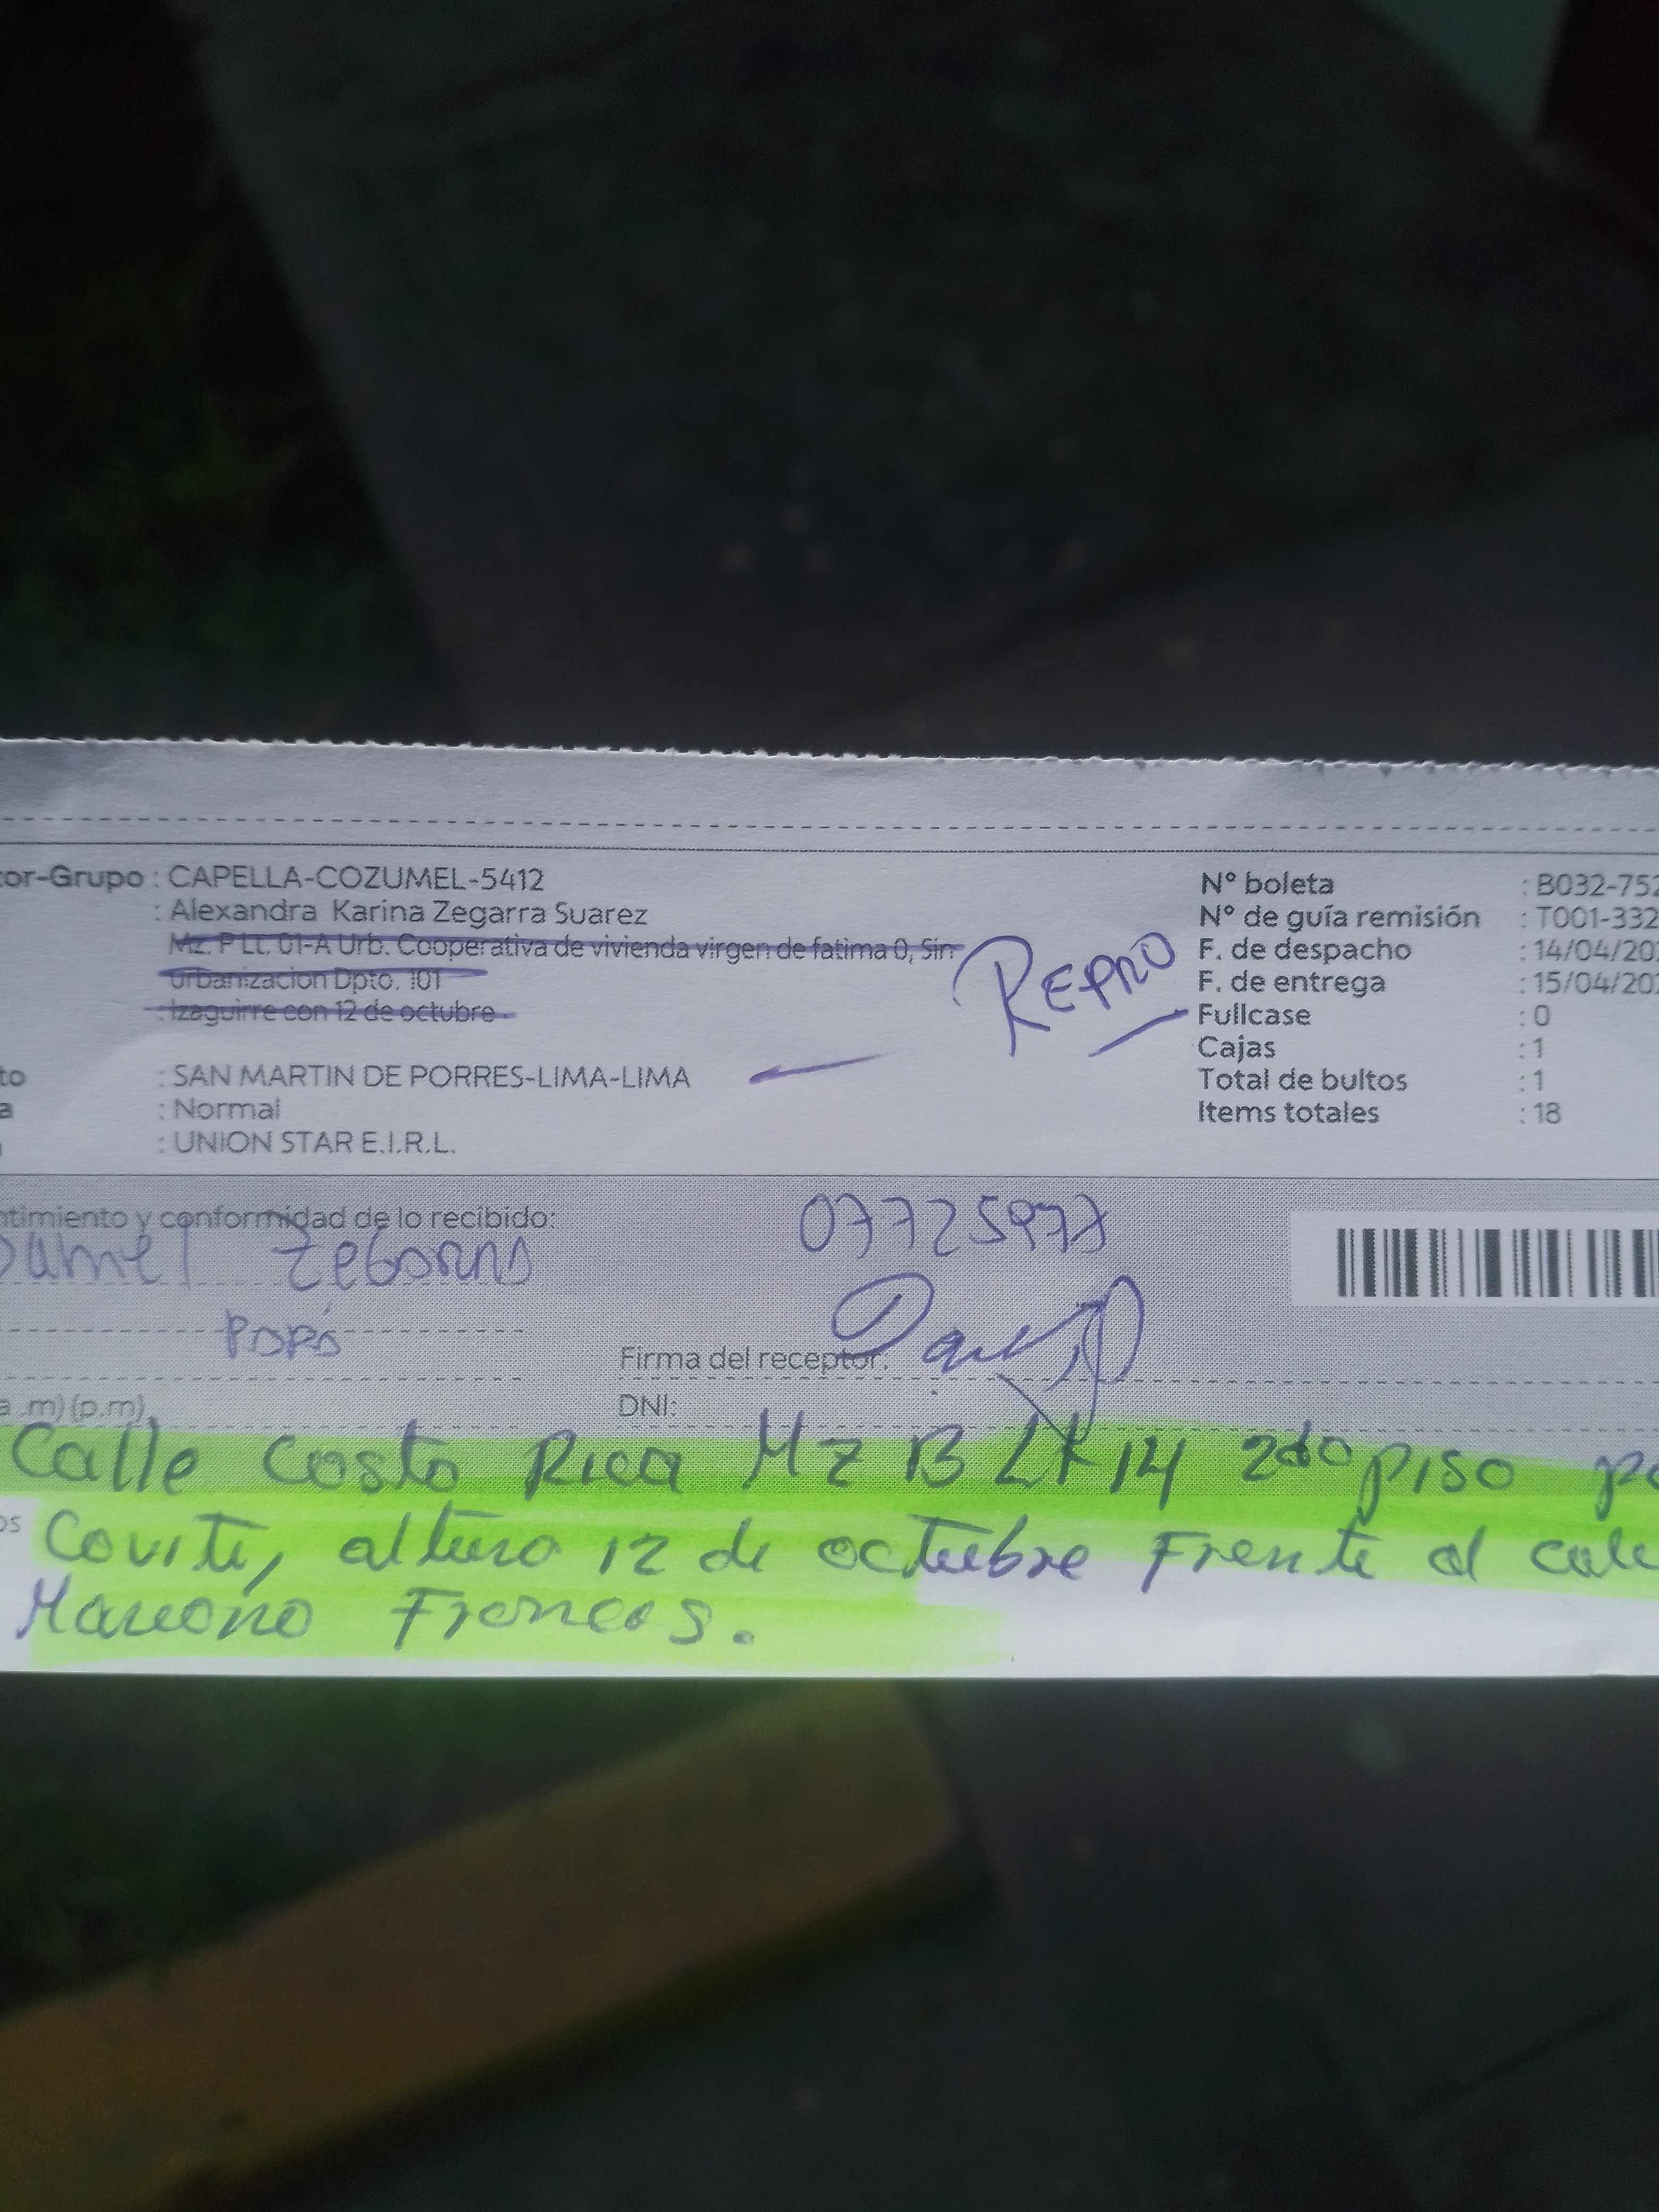 or-Grupo : CAPELLA-COZUMEL-5412
: Alexandra Karina Zegarra Suarez
Mz. P Lt. 01-A Urb. Cooperativa de vivienda virgen de fatima 0, Sin
urbanizacion Dpto. 101
: Izaguirre con 12 de octubre
to : SAN MARTIN DE PORRES-LIMA-LIMA
a : Normal
: UNION STAR E.I.R.L.
REPRO
Nº boleta : B032-752
Nº de guía remisión : T001-332
F. de despacho : 14/04/20
F. de entrega : 15/04/20
Fullcase : 0
Cajas : 1
Total de bultos : 1
Items totales : 18
ntimiento y conformidad de lo recibido:
07725977
PAPÁ
Firma del receptor:
a .m) (p.m)
DNI:
Calle Costa Rica Mz B Lt 14 2do piso
os
Coviti, altura 12 de octubre Frente al cole